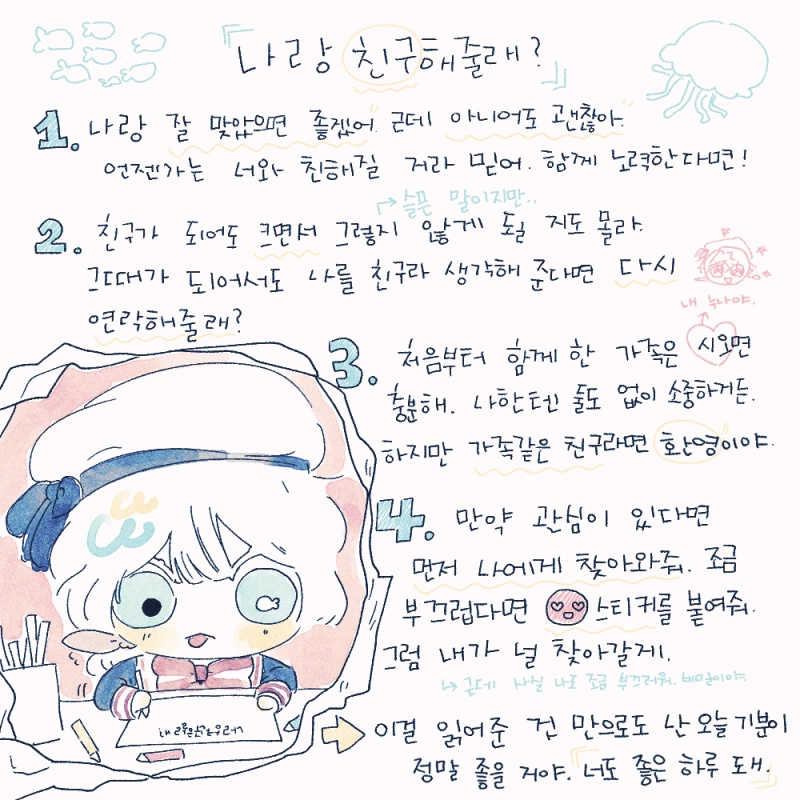 『나랑 친구해줄래?』
1. 나랑 잘 맞았으면 좋겠어. 근데 아니어도 괜찮아.
언젠가는 너와 친해질 거라 믿어. 함께 노력한다면!
→ 슬픈 말이지만..
2. 친구가 되어도 크면서 그렇지 않게 될 지도 몰라.
그때가 되어서도 나를 친구라 생각해 준다면 다시
연락해줄래?
내 누나야.
3. 처음부터 함께 한 가족은 시오면
충분해. 나한텐 둘도 없이 소중하거든.
하지만 가족같은 친구라면 환영이야.
4. 만약 관심이 있다면
먼저 나에게 찾아와줘. 조금
부끄럽다면 스티커를 붙여줘.
그럼 내가 널 찾아갈게.
↳ 근데 사실 나도 조금 부끄러워. 비밀이야.
이걸 읽어준 건 만으로도 난 오늘 기분이
정말 좋을 거야. 『너도 좋은 하루 돼.』